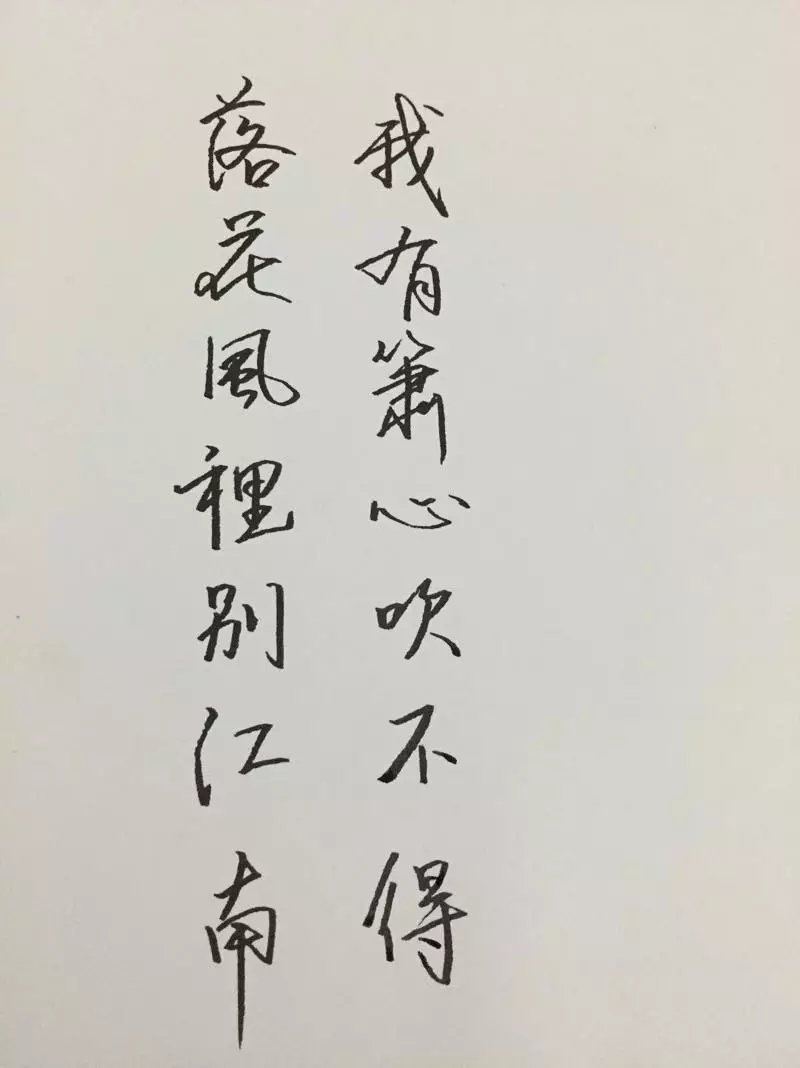 我有簫心吹不得
落花風裡别江南